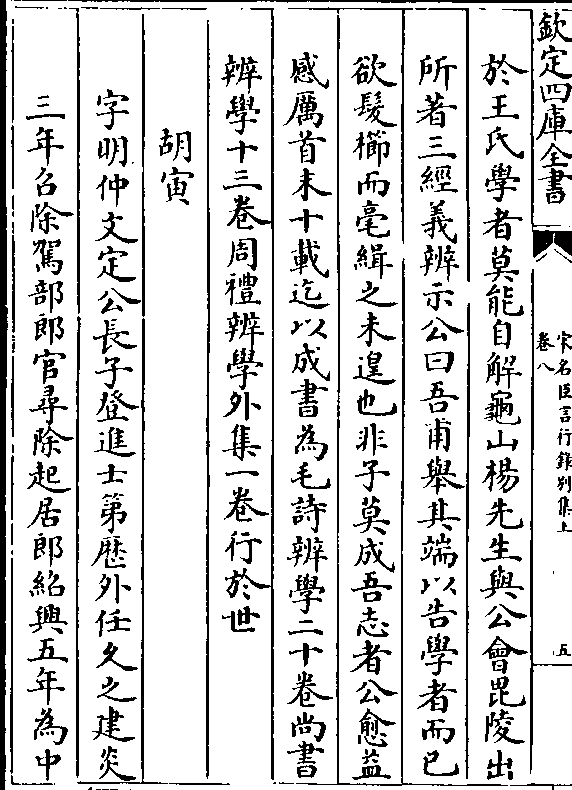 欽定四庫全書
宋名臣言行錄别集上
卷八
五
於王氏學者莫能自解龜山楊先生與公會毘陵出
所著三經義辨示公曰吾甫舉其端以告學者而已
欲髮櫛而毫緝之未遑也非子莫成吾志者公愈益
感厲首末十載迄以成書為毛詩辨學二十卷尚書
辨學十三卷周禮辨學外集一卷行於世
胡寅
字明仲文定公長子登進士第歷外任久之建炎
三年召除駕部郎官尋除起居郎紹興五年為中